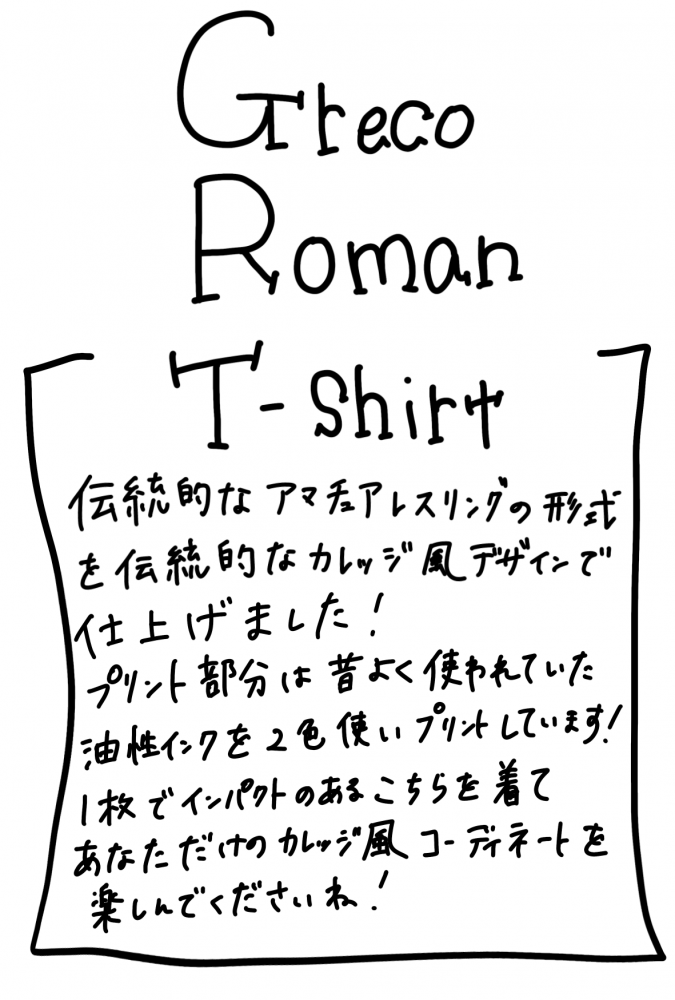 Greco
Roman
T-shirt
伝統的なアマチュアレスリングの形式
を伝統的なカレッジ風デザインで
仕上げました!
プリント部分は昔よく使われていた
油性インクを2色使いプリントしています!
1枚でインパクトのあるこちらを着て
あなただけのカレッジ風コーディネートを
楽しんでくださいね!